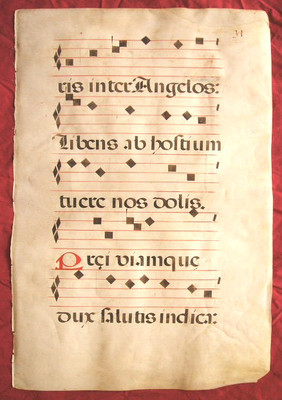 31
tis inter Angelos:
Libens ab hostium
tuere nos dolis.
Preçi viamque
dux salutis indica: